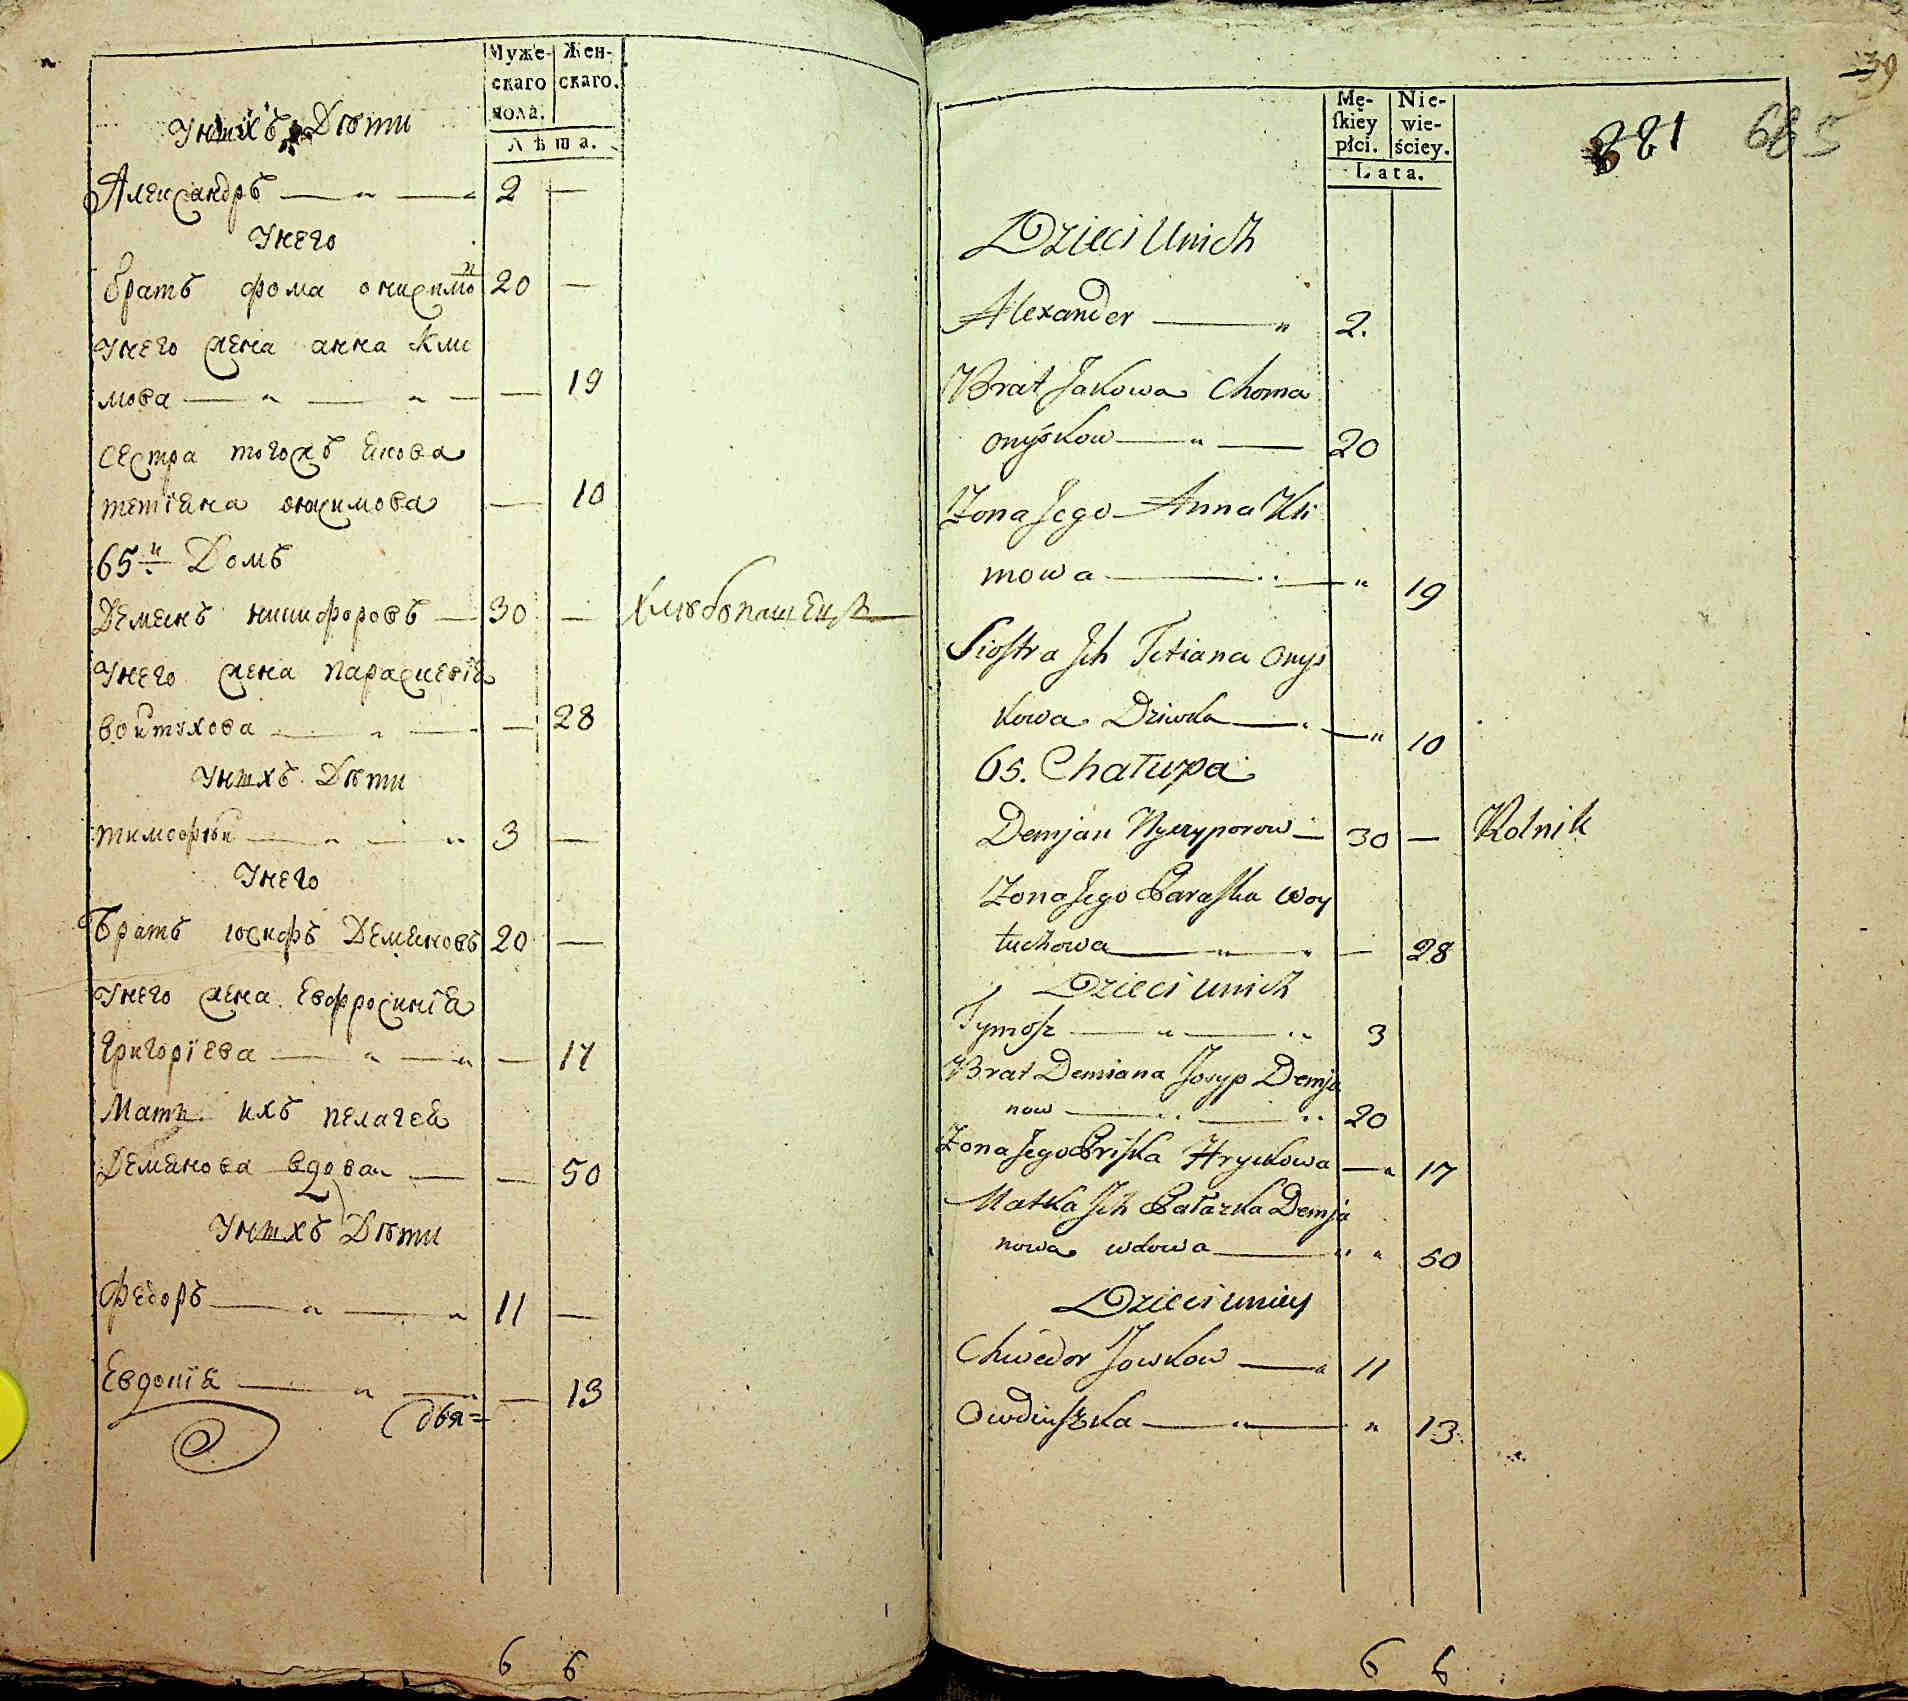 Муже- Жен-
скаго скаго.
пола.
Лѣта.
Унихъ Дѣти
Александръ 2 —
Унего
братъ фома онисимо 20 —
Унего жена анна Кли
мова — 19
сестра тогожъ Якова
тетіяна онисимова — 10
65й Домъ
Демянъ никифоровъ 30 — Хлѣбопашецъ
Унего жена параскевія
войтухова — 28
Унихъ Дѣти
тимофѣй 3 —
Унего
Братъ юсифъ Демяновъ 20 —
Унего жена Евфросинія
Григоріева — 17
Мать ихъ пелагея
Демянова вдова — 50
Унихъ Дѣти
Федоръ 11 —
Евдокія — 13
6 6
39
221 685
Mę- Nie-
skiey wie-
płci. ściey.
Lata.
Dzieci Unich
Alexander 2.
Brat Jakowa Choma
onyśkow 20
Żona Jego Anna Kli
mowa 19
Siostra Jch Tetiana Onys
kowa Dziwka 10
65. Chałupa
Demjan Nyczyporow 30 — Rolnik
Żona Jego Paraska Woy
tuchowa — 28
Dzieci unich
Tymosz 3
Brat Demiana Josyp Demja
now 20
Żona Jego Priska Hryckowa — 17
Matka Jch Pałazka Demja
nowa wdowa 50
Dzieci uniey
Chwedor Jowkow 11
Owdiuszka 13
6 6